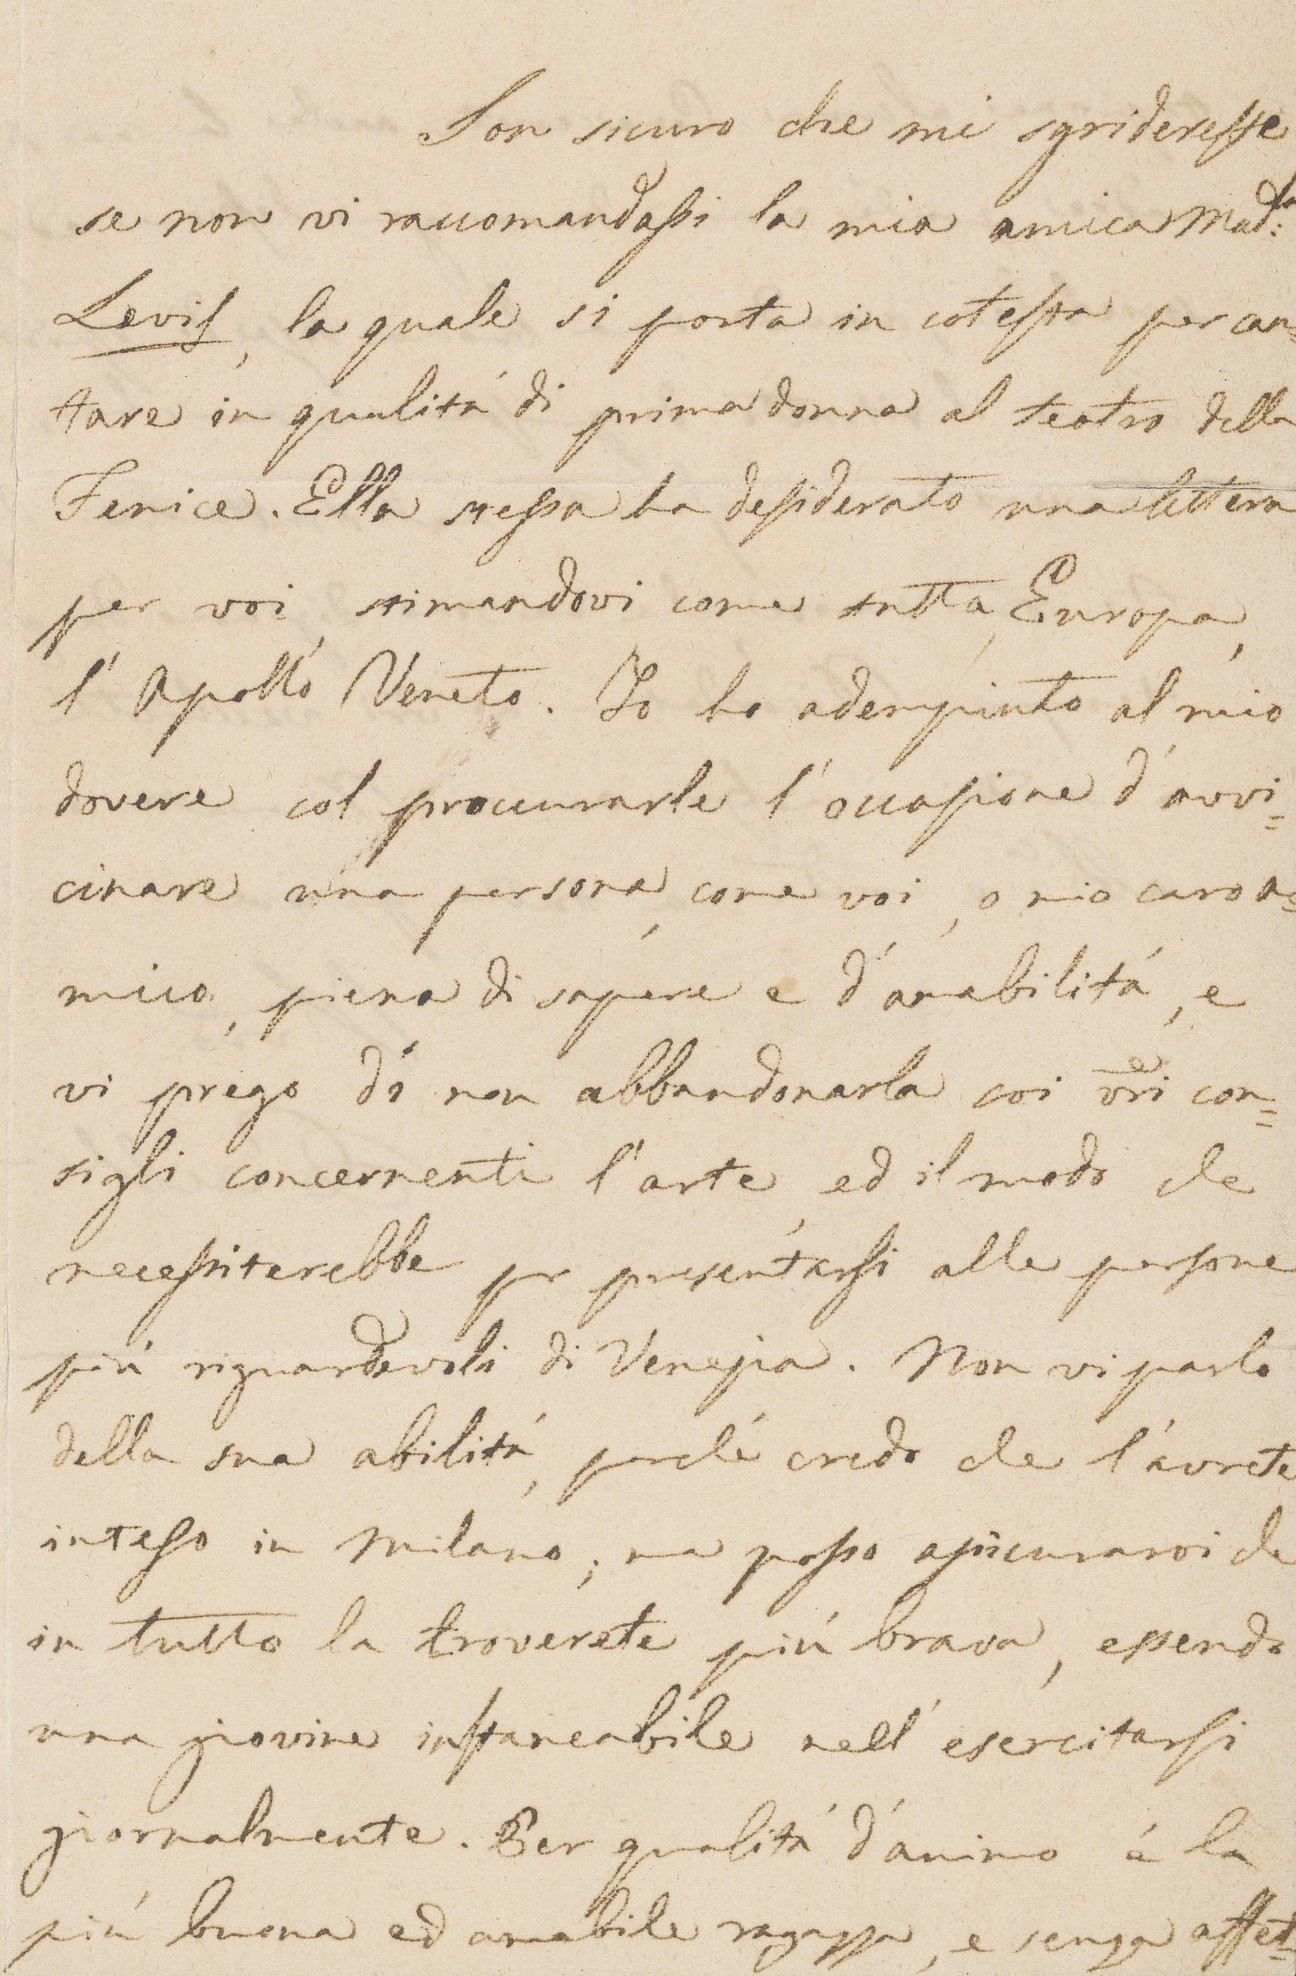 Son sicuro che mi sgrideresse
se non vi raccomandassi la mia amica Mad:la
Levis, la quale si porta in cotessa per can=
tare in qualitá di prima donna al teatro della
Fenice. Ella stessa ha desiderato una lettera
per voi, stimandovi come tutta, Europa,
l'Apollo Veneto. Io ho adempiuto al mio
dovere col proccurarle l'occasione d'avvi=
cinare una persona, come voi, o mio caro a=
mico, piena di sapere e d'amabilitá, e
vi prego di non abbandonarla coi vri con=
sigli concernenti l'arte, ed il modo che
necessiterebbe per presentarsi alle persone
piú riguardevoli di Venezia. Non vi parlo
della sua abilitá, perché credo che l'avrete
inteso in Milano; ma posso assicurarvi che
in tutto la troverete piú brava, essendo
una giovine instancabile nell'esercitarsi
giornalmente. Per qualitá d'animo é la
piú buona ed amabile ragazza, e senza affet=